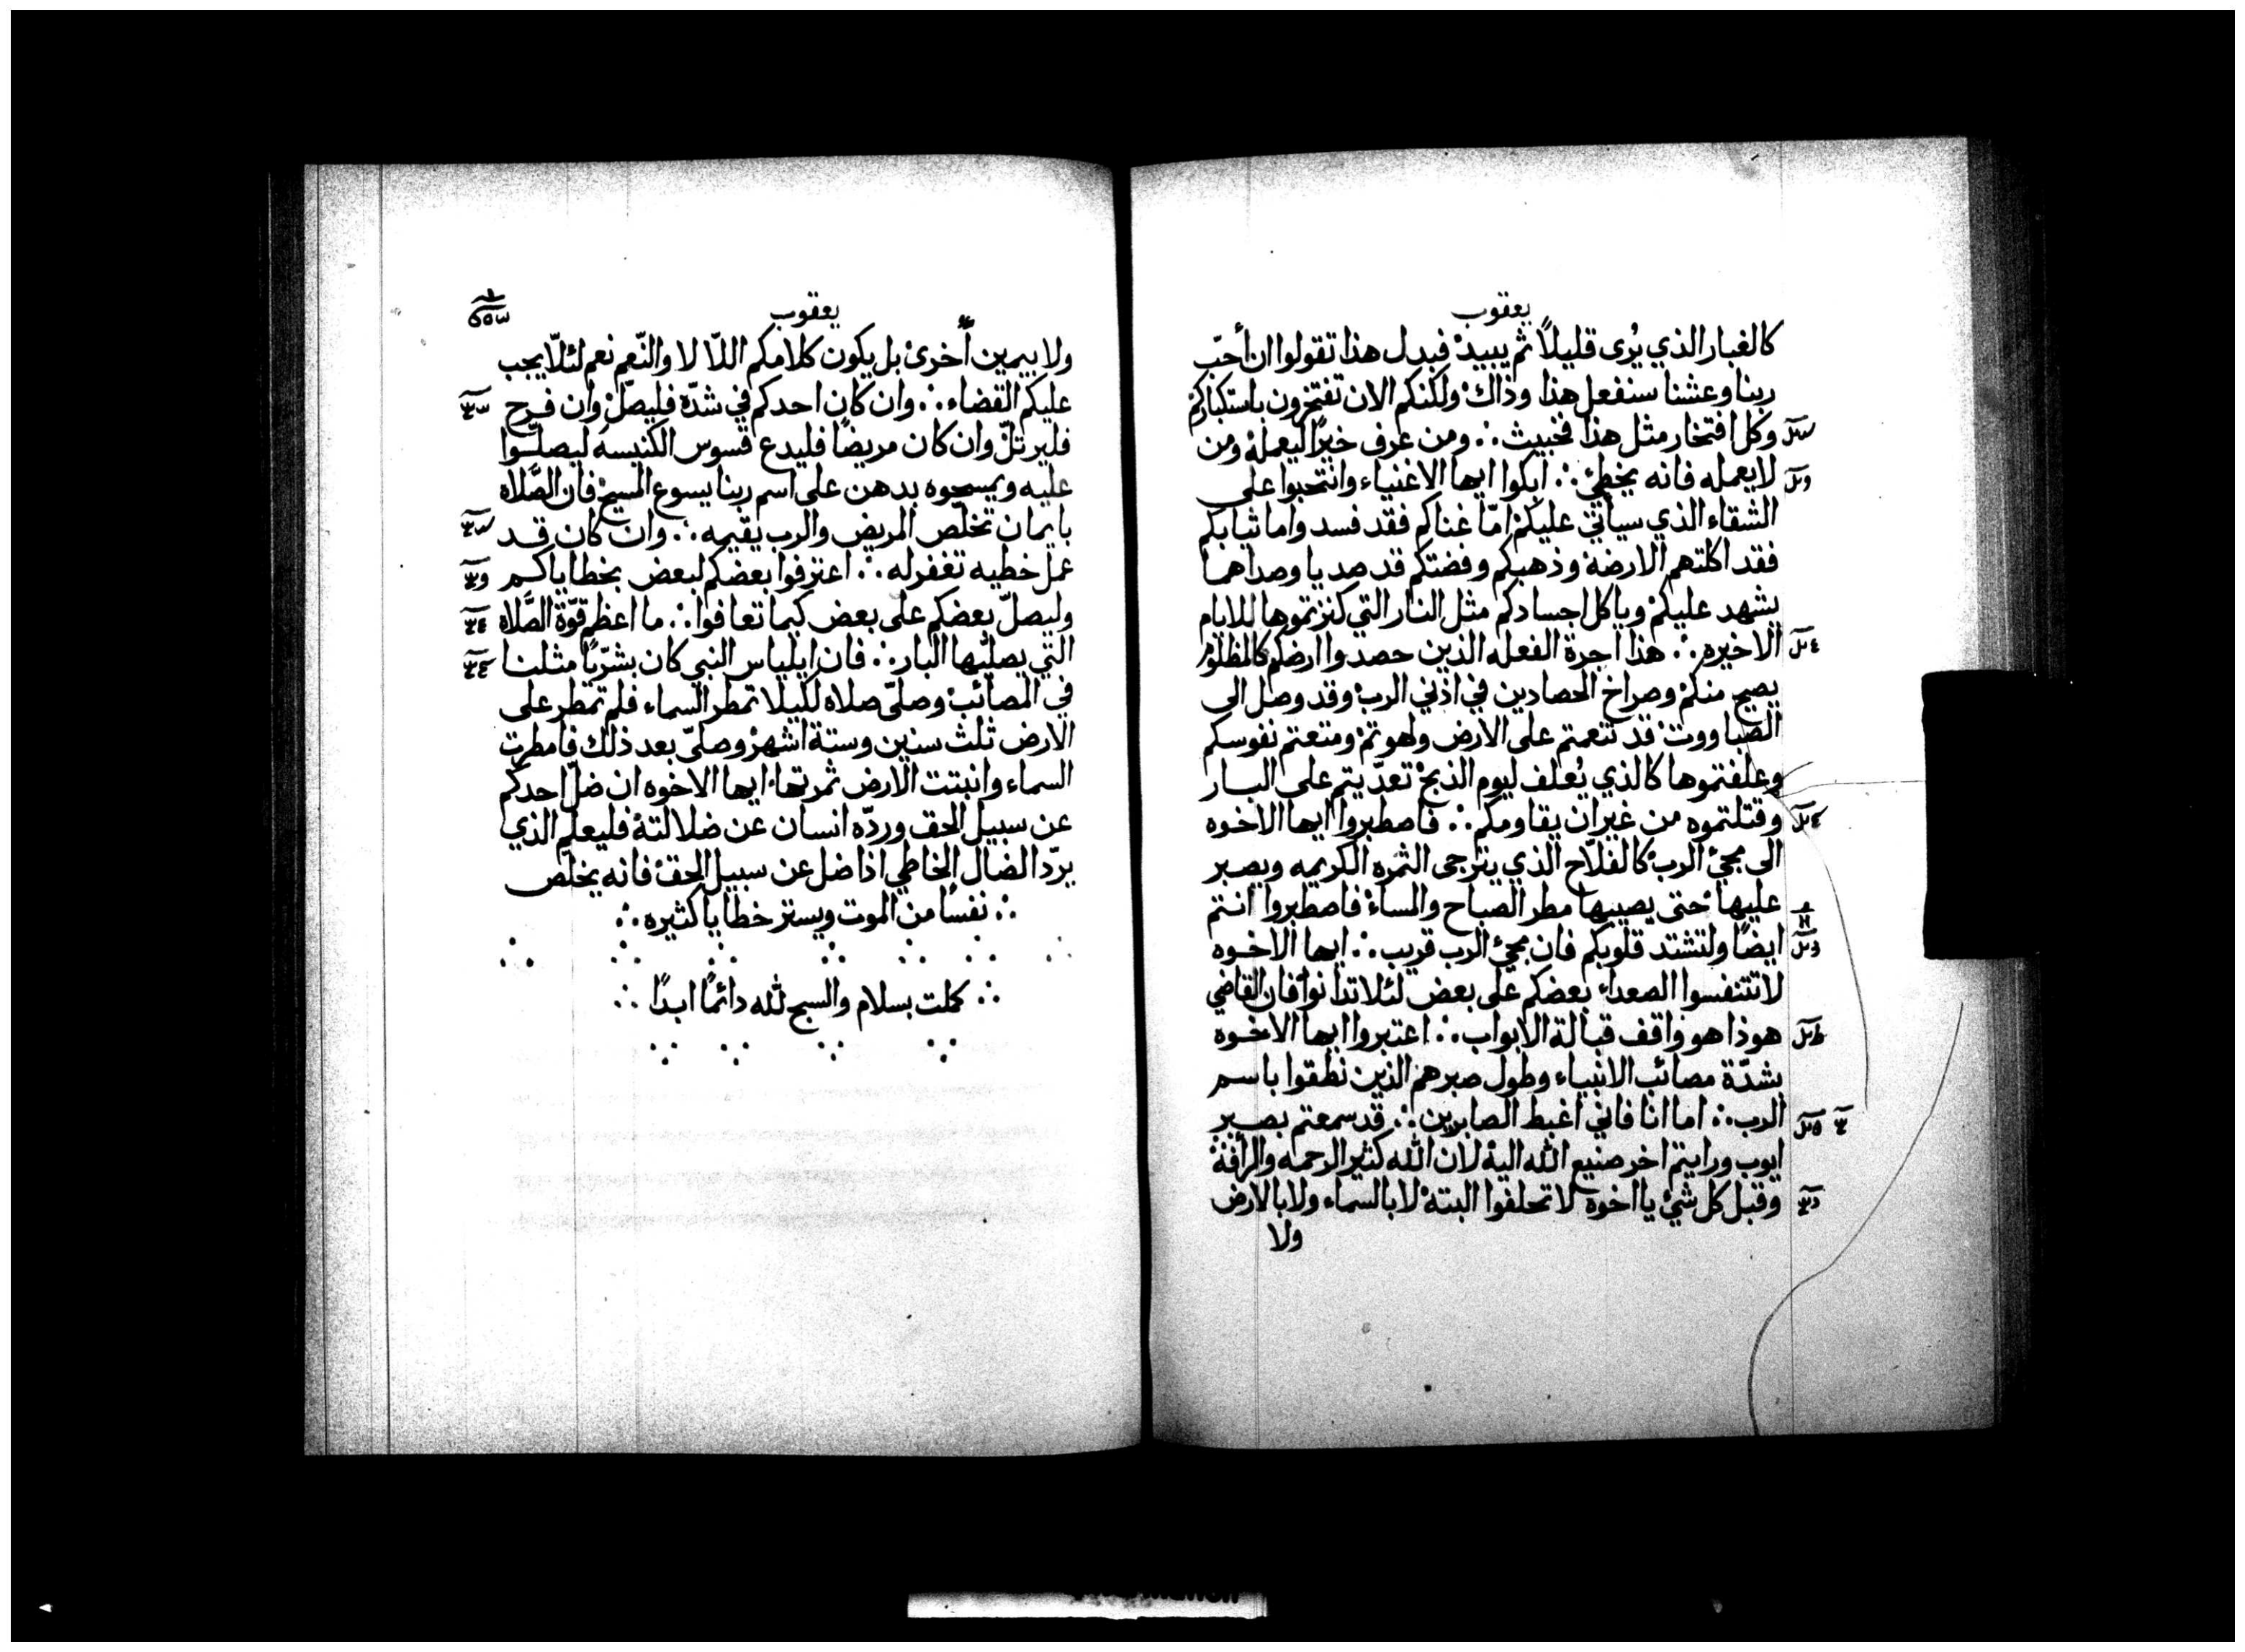 يعقوب
كالغبار الذي يُرى قليلاً ثم يبيد فبدل هذا تقولوا ان أحبّ
ربنا وعشنا سنفعل هذا وذاك ولكنكم الان تفتخرون باستكباركم
وكل افتخار مثل هذا فخبيث ∴ ومن عرف خيرًا ليعمله ومن
لا يعمله فانه يخطئ ∴ ابكوا ايها الاغنياء وانتحبوا على
الشقاء الذي سياتي عليكم امّا غناكم فقد فسد واما ثيابكم
فقد اكلتهم الارضة وذهبكم وفضتكم قد صديا وصداهما
يشهد عليكم وياكل اجسادكم مثل النار التي كنزتموها للايام
الاخيره ∴ هذا اجرة الفعله الذين حصدوا ارضكم كالمظلوم
يصيح منكم وصراخ الحصادين في اذني الرب وقد وصل الى
الصباووت قد تنعمتم على الارض ولهوتم ومتعتم نفوسكم
وعلفتموها كالذي يُعلف ليوم الذبح تعدّيتم على البار
وقتلتموه من غير ان يقاومكم ∴ فاصطبروا ايها الاخوه
الى مجئ الرب كالفلاّح الذي يترجى الثمره الكريمه ويصبر
عليها حتى يصيبها مطر الصباح والمساء فاصطبروا انتم
ايضًا ولتشتد قلوبكم فان مجئ الرب قريب ∴ ايها الاخوه
لا تتنفسوا الصعداء بعضكم على بعض لئلا تدانوا فان القاضي
هوذا هو واقف قبالة الابواب ∴ اعتبروا ايها الاخوه
بشدّة مصائب الانبياء وطول صبرهم الذين نطقوا باسم
الرب ∴ اما انا فاني اغبط الصابرين ∴ قد سمعتم بصبر
ايوب ورايتم اخر صنيع الله اليه لان الله كثير الرحمه والرأفة
وقبل كل شئ يا اخوه لا تحلفوا البتة لا بالسماء ولا بالارض
ولا
يعقوب
ولا بيمين أخرى بل يكون كلامكم اللاّ لا والنّعم نعم لئلاّ يجب
عليكم القضاء ∴ وان كان احدكم في شدّة فليصلّ وان فرح
فليرتلّ وان كان مريضًا فليدع قسوس الكنيسه ليصلّوا
عليه ويمسحوه بدهن على اسم ربنا يسوع المسيح فان الصّلاه
بايمان تخلّص المريض والرب يقيمه ∴ وان كان قد
عمل خطيه تغفر له ∴ اعترفوا بعضكم لبعض بخطاياكم
وليصلّ بعضكم على بعض كيما تعافوا ∴ ما اعظم قوّة الصّلاه
التي يصليها البار ∴ فان ايلياس النبي كان بشريًّا مثلنا
في المصائب وصلّى صلاه لكيلا تمطر السماء فلم تمطر على
الارض ثلث سنين وستة اشهر وصلّى بعد ذلك فامطرت
السماء وانبتت الارض ثمرتها ايها الاخوه ان ضلّ احدكم
عن سبيل الحق وردّه انسان عن ضلالته فليعلم الذي
يردّ الضال الخاطي اذا ضل عن سبيل الحق فانه يخلّص
∴ نفسًا من الموت ويستر خطايا كثيره ∴
∴ كملت بسلام والسبح لله دائمًا ابدًا ∴